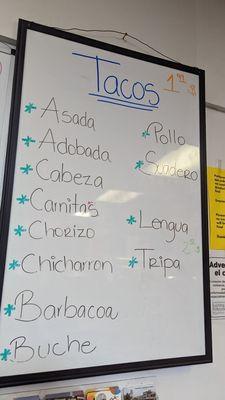 Tacos
* Asada
* Adobada
* Cabeza
* Carnitas
* Chorizo
* Chicharron
* Barbacoa
* Buche
* Pollo
* Suadero
* Lengua
* Tripa
Adve
el c